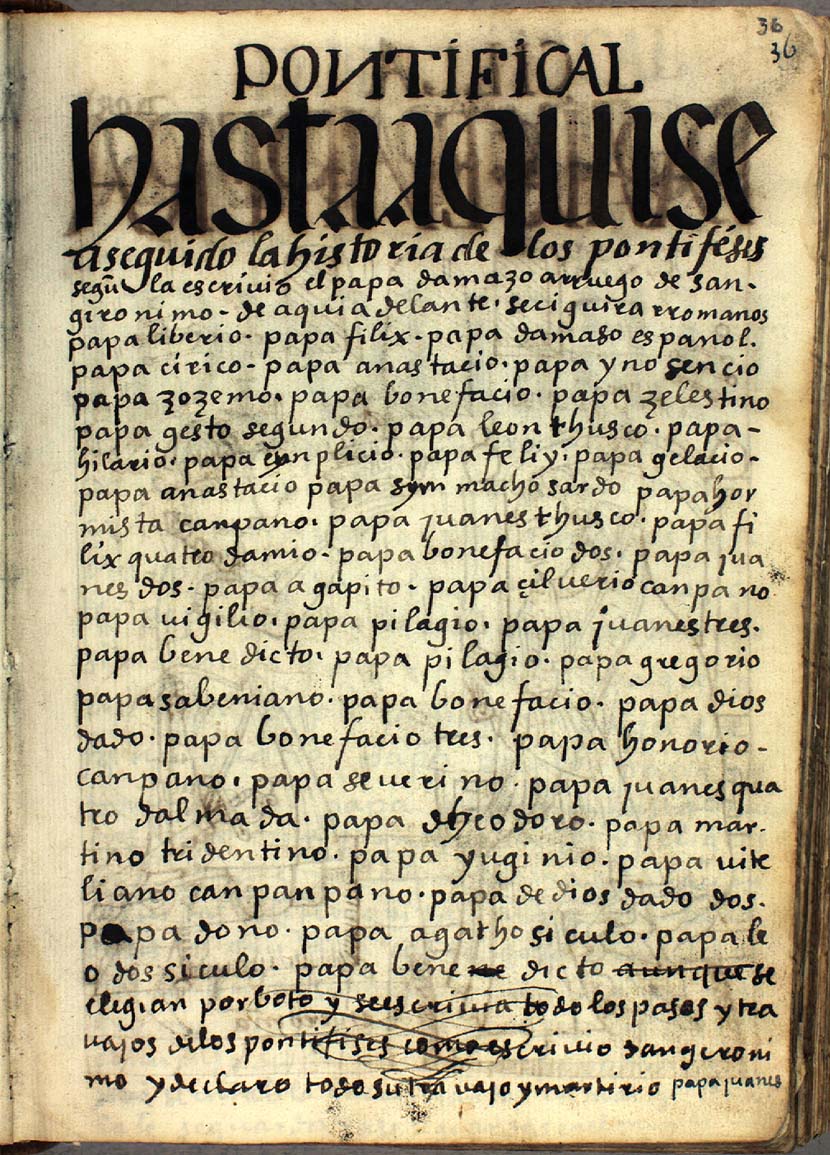 36
36
PONTIFICAL
hastaaquise
aseguido la historia de los pontiféses
segũ la escrivio el papa damazo arruego de san-
gironimo - de aquiadelante. seciguira rromanos
papa liberio. papa filix. papa damaso español.
papa círico. papa anastacio. papa ynosencio
papa zozemo. papa bonefacio. papa zelestino
papa gesto segundo. papa leon thusco. papa-
hilario. papa cinplicio. papa feliy. papa gelacio-
papa anastacio papa symmacho sardo papa hor
mista canpano. papa juanes thusco. papa fi
lix quatro damio. papa bonefacio dos. papa jua
nes dos. papa agapito. papa çilverio canpano
papa vigilio. papa pilagio. papa juanes tres.
papa benedicto. papa pilagio. papa gregorio
papa sabeniano. papa bonefacio. papa dios
dado. papa bonefacio tres. papa honorio-
canpano. papa severino. papa juanes qua
tro dalmada. papa theodoro. papa mar-
tino tridentino. papa yuginio. papa vite
liano canpanpano. papa dedios dado dos.
papa dono. papa agatho siculo. papa le
o dos siculo. papa bene ne dicto aunque se
elegian por boto y se escrivia todo los pasos y tra
vajos de los pontifises como escrivio san geroni
mo y declaro todo su travajo y martirio papa juanes